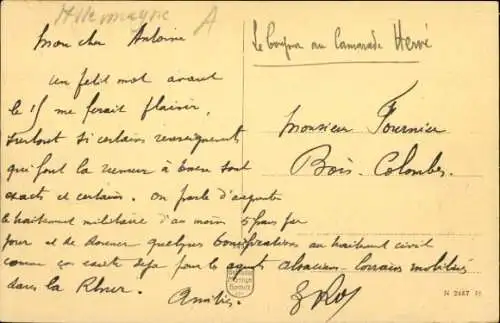 Allemagne A
Mon cher Antoine
Le bonjour au Camarade Hervé
Un petit mot avant
le 15 me ferait plaisir,
surtout si certains renseignements
qui font la rumeur à sont
exacts et certains. On parle d'augmenter
le traitement militaire d'au moins 5 frs par
jour et de donner quelques bonifications au traitement civil
comme ça existe déjà pour les agents alsaciens-lorrains mobilisés
dans la Rhur.
Amitiés
Monsieur Fournier
Bois-Colombes
N 2487